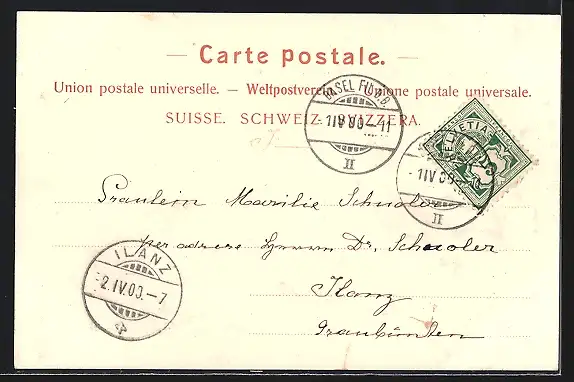 — Carte postale. —
Union postale universelle. — Weltpostverein. Unione postale universale.
SUISSE. SCHWEIZ. SVIZZERA.
HELVETIA
II
II
1 IV 00 – 11
1 IV 00
Fraulein Marilie
per adresse Herrn Dr. Schmoler
Ilanz
Graubünten
ILANZ
2. IV. 00. – 7